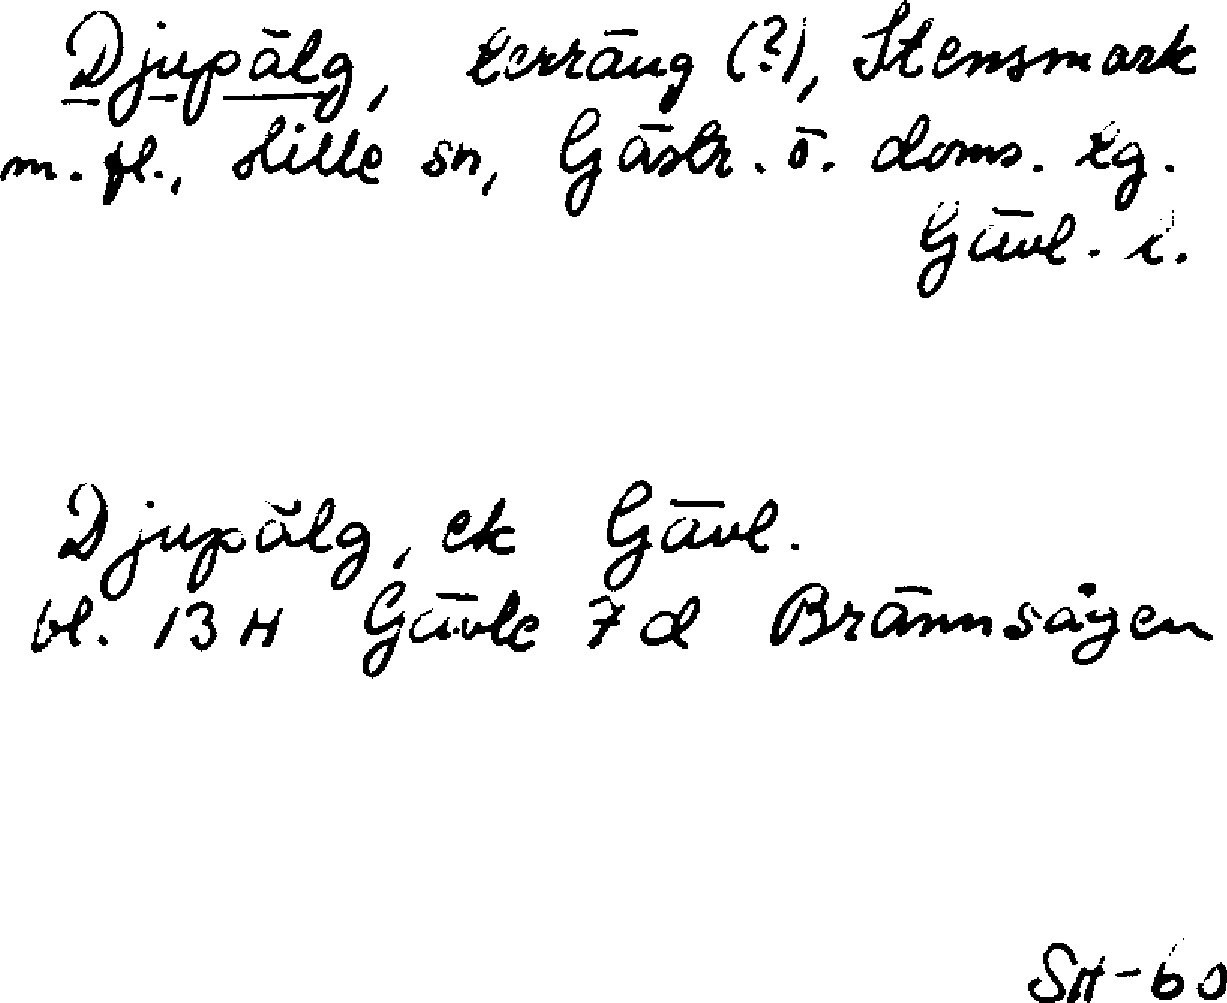 Djupälg, terräng (?), Stensmark
m. fl., Hille sn, Gästr. ö. doms. tg.
Gävl. l.
Djupälg, ek Gävl.
bl. 13 H Gävle 7 d Brännsågen
SH-60